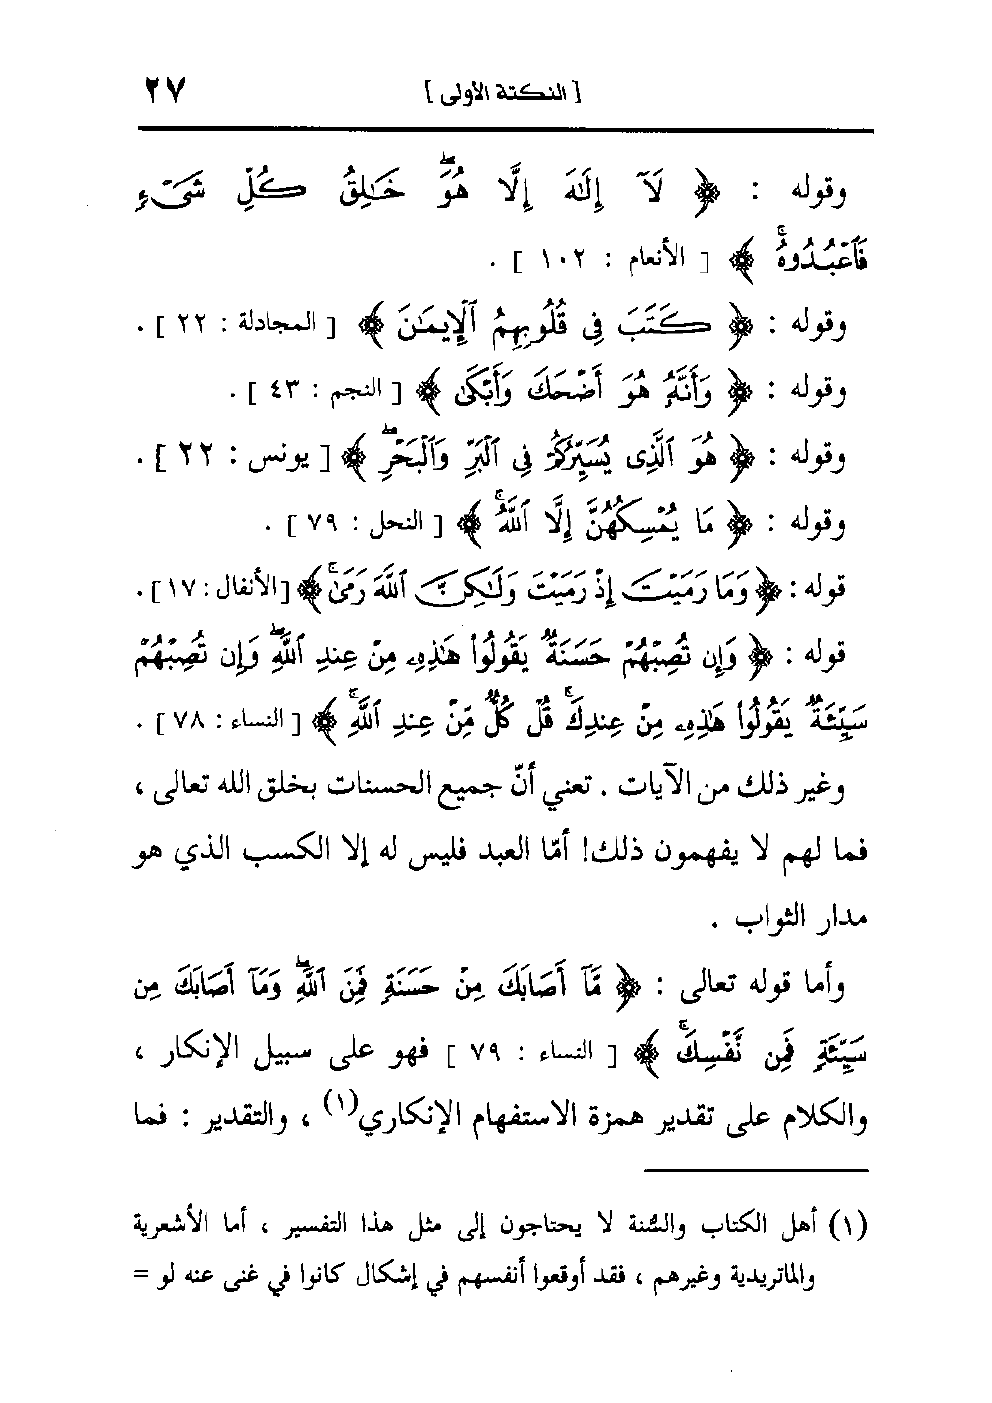 [ النكتة الأولى ] ٢٧
وقوله : ﴿ لَآ إِلَٰهَ إِلَّا هُوَۖ خَٰلِقُ كُلِّ شَىْءٍ
فَٱعْبُدُوهُۚ ﴾ [ الأنعام : ١٠٢ ] .
وقوله : ﴿ كَتَبَ فِى قُلُوبِهِمُ ٱلْإِيمَٰنَ ﴾ [ المجادلة : ٢٢ ] .
وقوله : ﴿ وَأَنَّهُۥ هُوَ أَضْحَكَ وَأَبْكَىٰ ﴾ [ النجم : ٤٣ ] .
وقوله : ﴿ هُوَ ٱلَّذِى يُسَيِّرُكُمْ فِى ٱلْبَرِّ وَٱلْبَحْرِۖ ﴾ [ يونس : ٢٢ ] .
وقوله : ﴿ مَا يُمْسِكُهُنَّ إِلَّا ٱللَّهُۚ ﴾ [ النحل : ٧٩ ] .
قوله : ﴿ وَمَا رَمَيْتَ إِذْ رَمَيْتَ وَلَٰكِنَّ ٱللَّهَ رَمَىٰۚ ﴾ [الأنفال : ١٧] .
قوله : ﴿ وَإِن تُصِبْهُمْ حَسَنَةٌ يَقُولُوا۟ هَٰذِهِۦ مِنْ عِندِ ٱللَّهِۖ وَإِن تُصِبْهُمْ
سَيِّئَةٌ يَقُولُوا۟ هَٰذِهِۦ مِنْ عِندِكَۚ قُلْ كُلٌّ مِّنْ عِندِ ٱللَّهِۚ ﴾ [ النساء : ٧٨ ] .
وغير ذلك من الآيات . تعني أنّ جميع الحسنات بخلق الله تعالى ،
فما لهم لا يفهمون ذلك! أمّا العبد فليس له إلا الكسب الذي هو
مدار الثواب .
وأما قوله تعالى : ﴿ مَّآ أَصَابَكَ مِنْ حَسَنَةٍ فَمِنَ ٱللَّهِۖ وَمَآ أَصَابَكَ مِن
سَيِّئَةٍ فَمِن نَّفْسِكَۚ ﴾ [ النساء : ٧٩ ] فهو على سبيل الإنكار ،
والكلام على تقدير همزة الاستفهام الإنكاري(١) ، والتقدير : فما
(١) أهل الكتاب والسُّنة لا يحتاجون إلى مثل هذا التفسير ، أما الأشعرية
والماتريدية وغيرهم ، فقد أوقعوا أنفسهم في إشكال كانوا في غنى عنه لو =